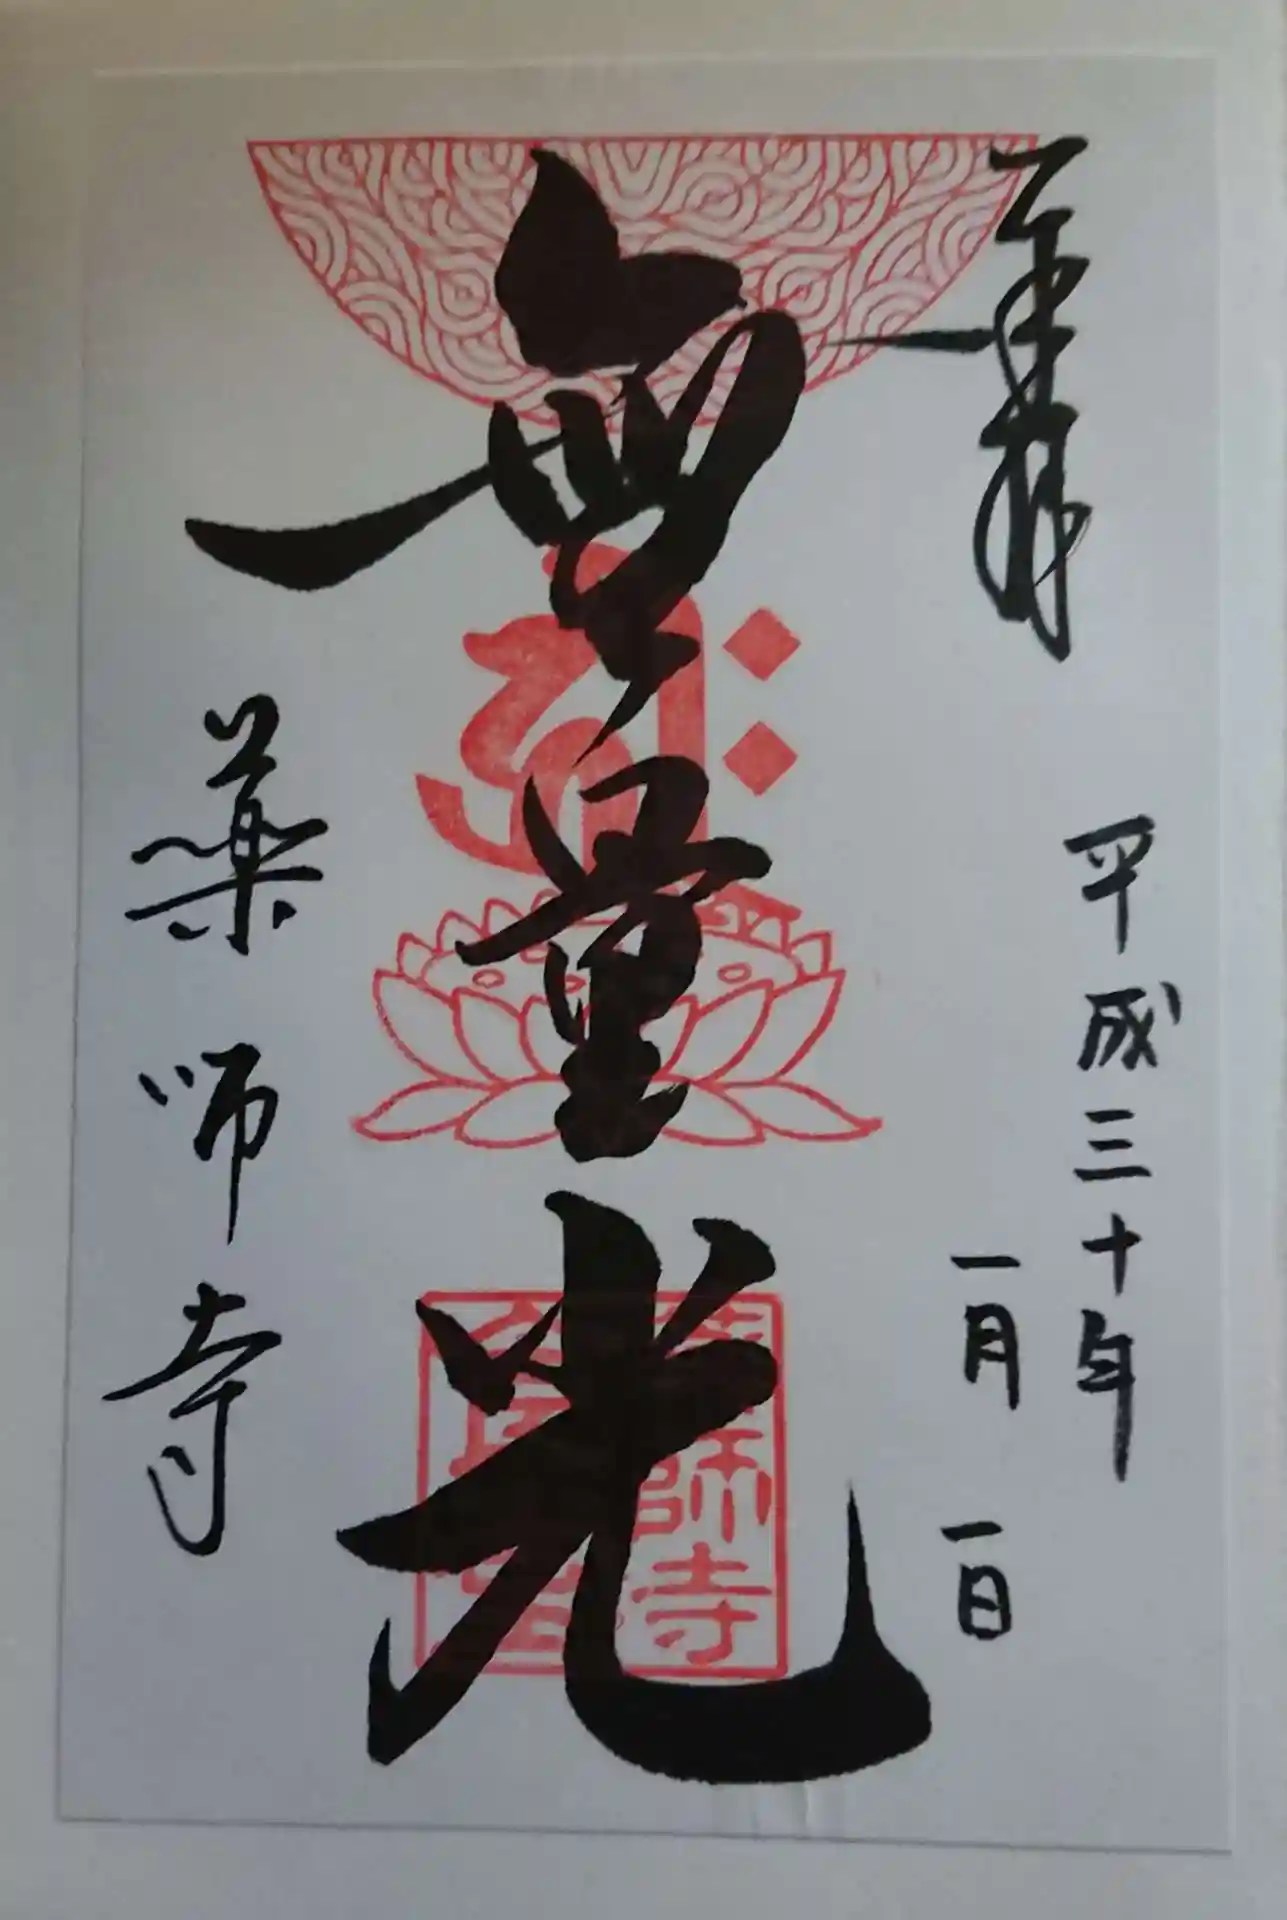 奉拝
平成三十年
一月一日
無量光
師寺
薬師寺